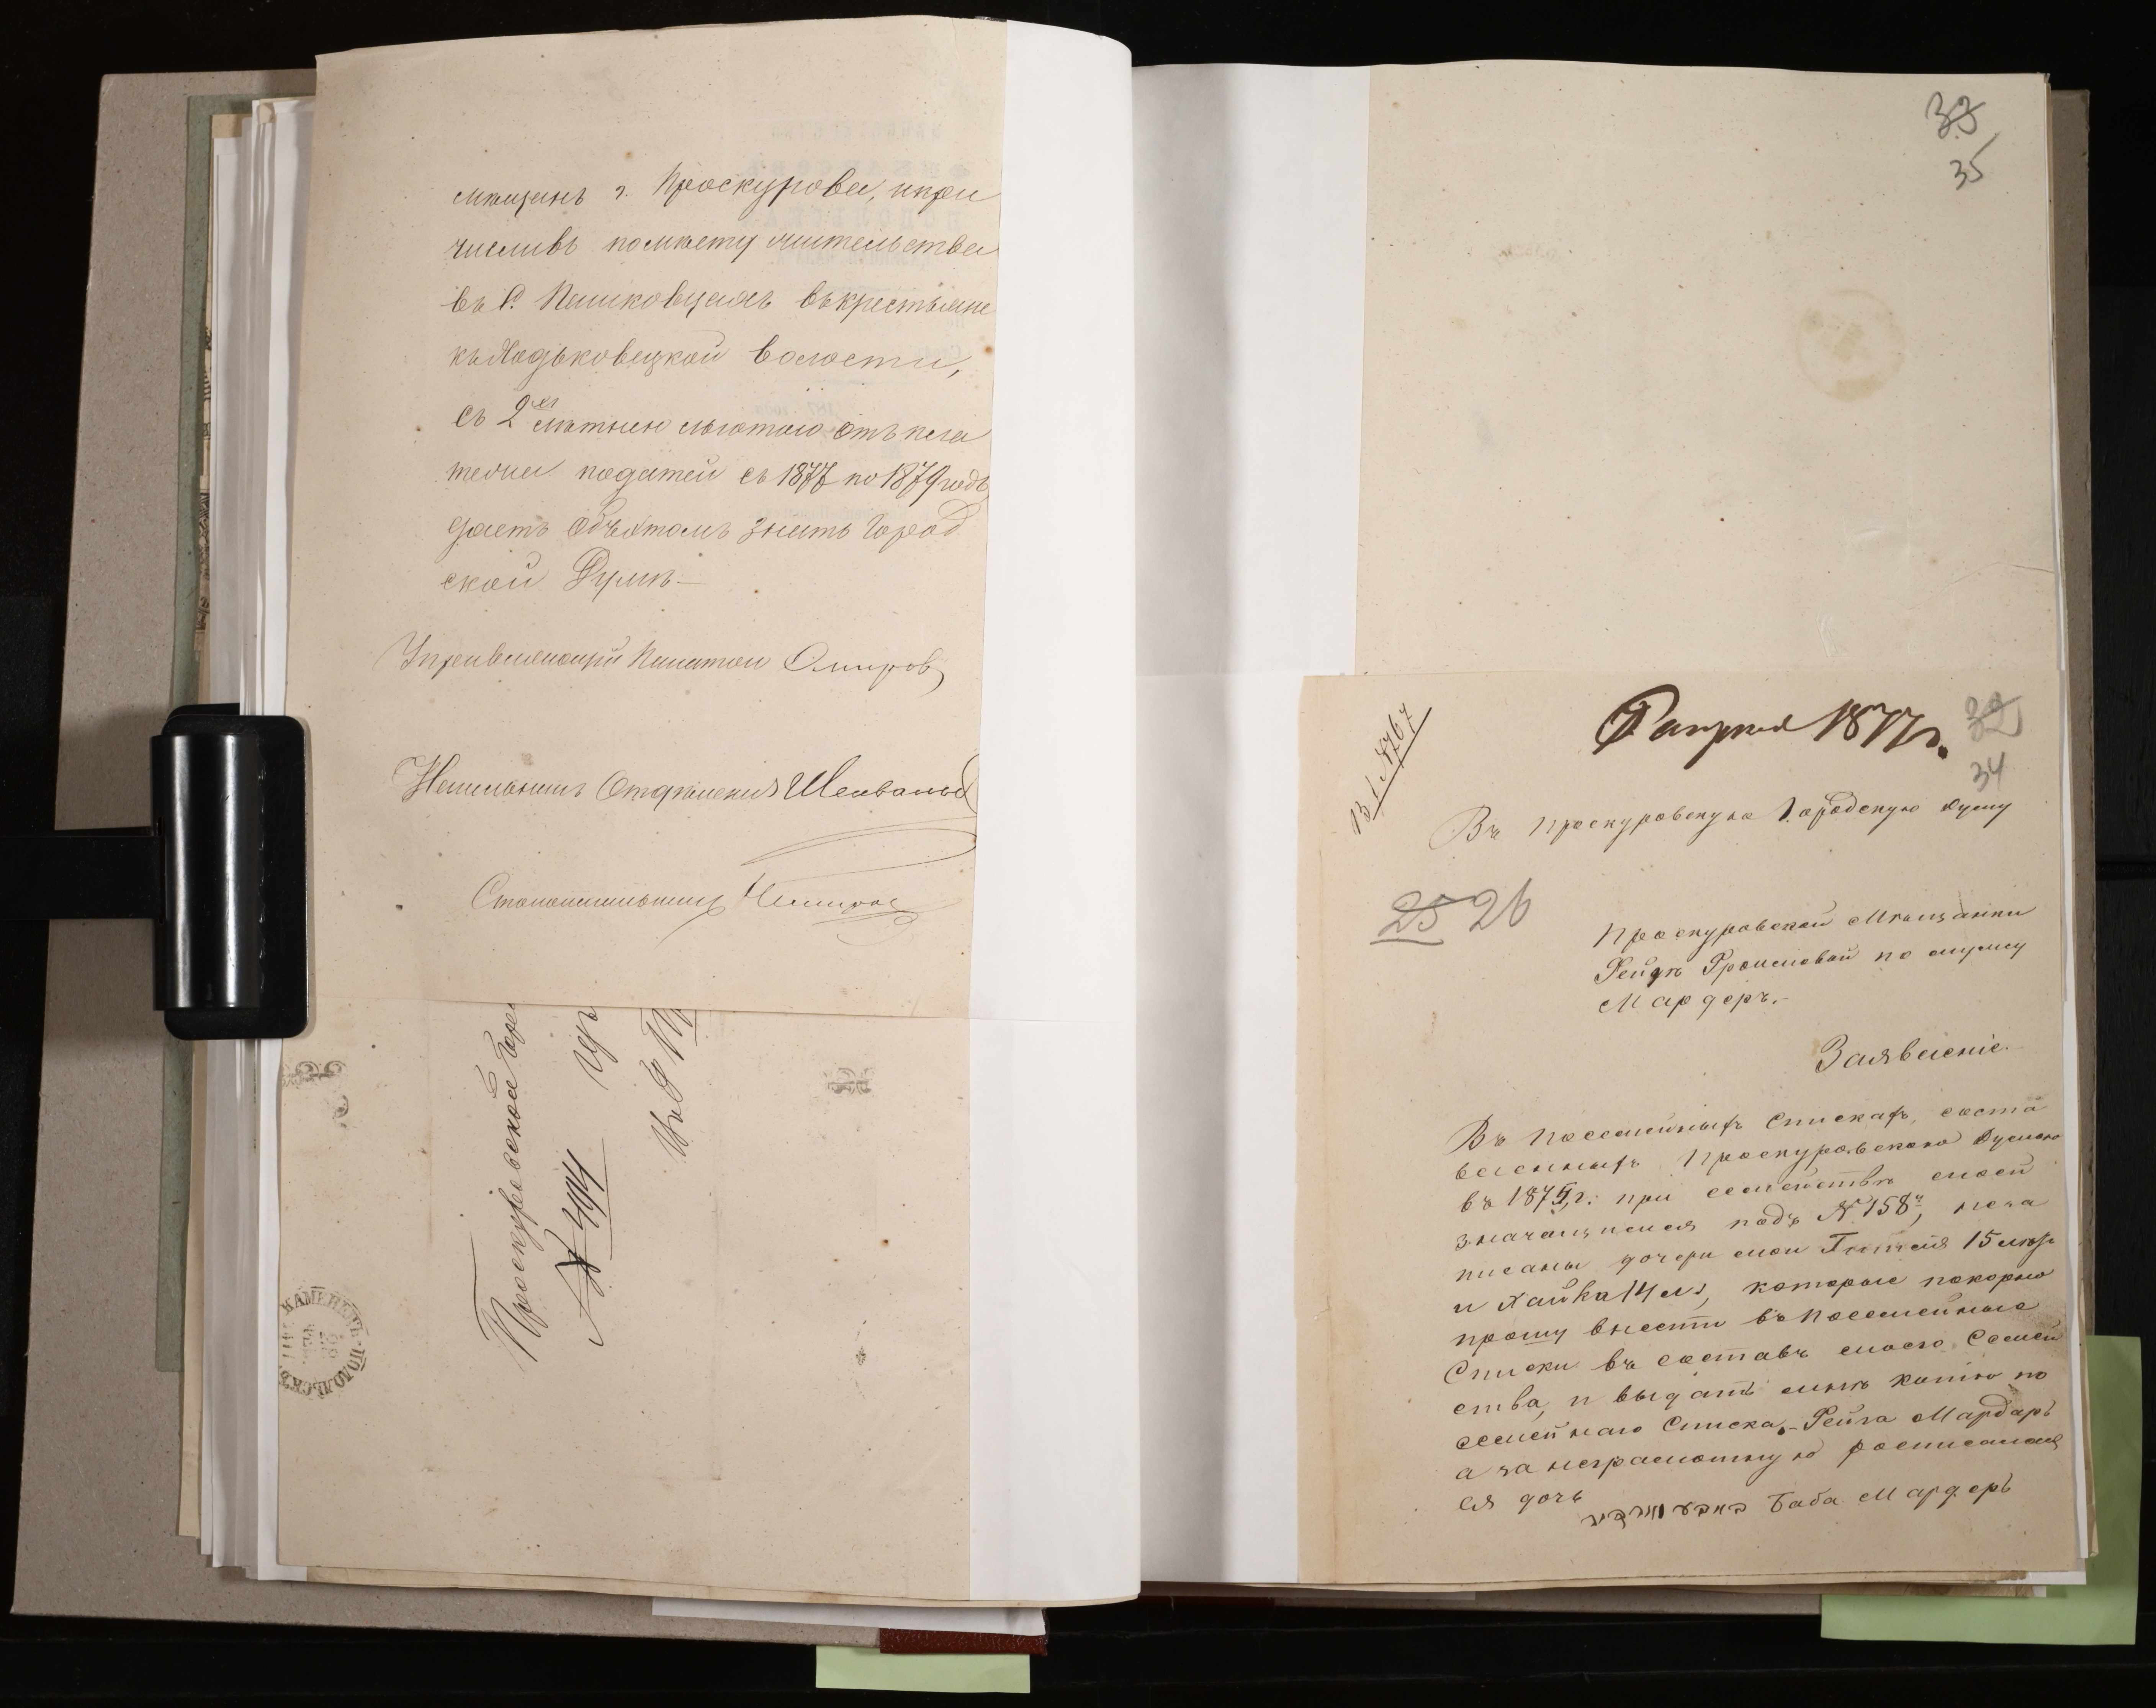 мѣщанъ г. Проскурова, и при
числивъ по мѣсту жительства
въ с. Пашковцахъ въ крестьяне
къ Модьковецкой волости,
съ 2хъ лѣтнею льготою отъ пла
тежа податей съ 1877 по 1879 годъ
даетъ объ этомъ знать Город
ской Думѣ
Управляющій Палатою
Начальникъ Отдѣленія
Столоначальникъ
Проскуровской Горо
№ 4914
КАМЕНЕЦЪ-ПОДОЛЬСКЪ
33
35
Вх № 767
7 апрѣля 1877 г.
32
34
Въ Проскуровскую Городскую Думу
25 26
Проскуровской Мѣщанки
Рейзѣ Фроимовой по мужу
Мардеръ.
Заявленіе.
Въ посемейныхъ Спискахъ, соста
вленныхъ Проскуровскою Думою
въ 1875 г: при семействѣ моей
значащимся подъ № 158, не за
писаны дочери мои Гитля 15 лѣтъ
и Хайка 14 л, которые покорно
прошу внести въ посемейные
Списки въ составъ моего Семей
ства, и выдать мнѣ копію по
семейнаго Списка, - Рейза Мардаръ
а за неграмотную росписалась
ся дочь
Баба Мардеръ